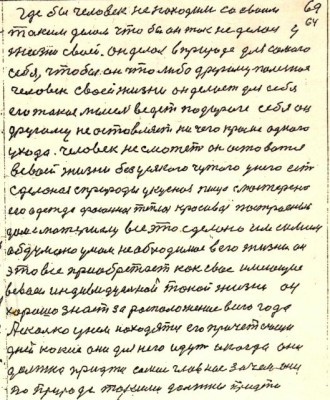 69
64
Где бы человек не находил со своим
таким делом что бы он так не делал
жизто своей. Он делал в природе для самого
себя, чтобы он что либо другому
человек своей жизни он делает для себя
его такая ведет по дороге себя он
другому не оставляет ни чего кроме одного
ухода. Человек не сможет он оставатся
в своей жизни без всякого чужого
сделоная с природы вкусная пища
его одежда теплая красивая построеный
дом с материалу все это сделано его силами
абдумано умом необходимое в его жизни он
это все приобретает как свое
в своей индивидуальной такой жизни он
хорошо знает за расположение всего года
А сколко у нем находится его
дней какие они для него идут и когда они
должна придти самое главное за чем они
по природе такими должны придти